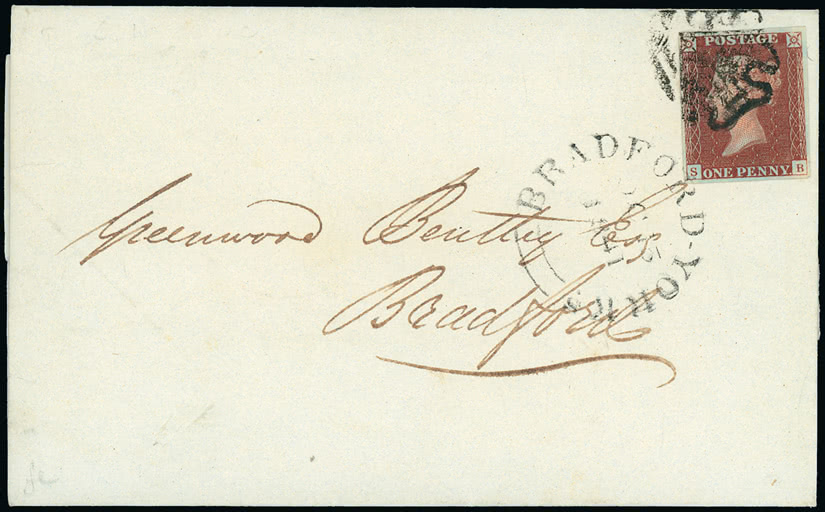 POSTAGE
S ONE PENNY. B
BRADFORD-YORKS
Greenwood Bentley Esq
Bradford